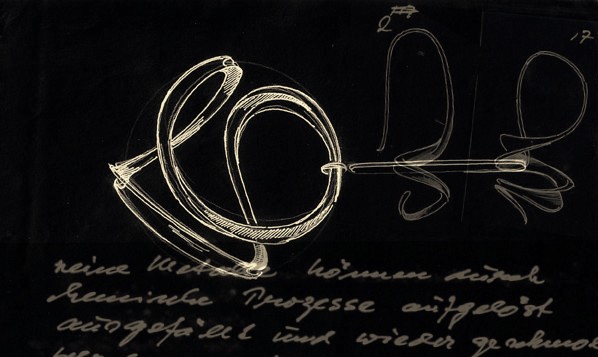 2 17
reine Metalle können durch
chemische Prozesse aufgelöst
ausgefällt und wieder geschmol